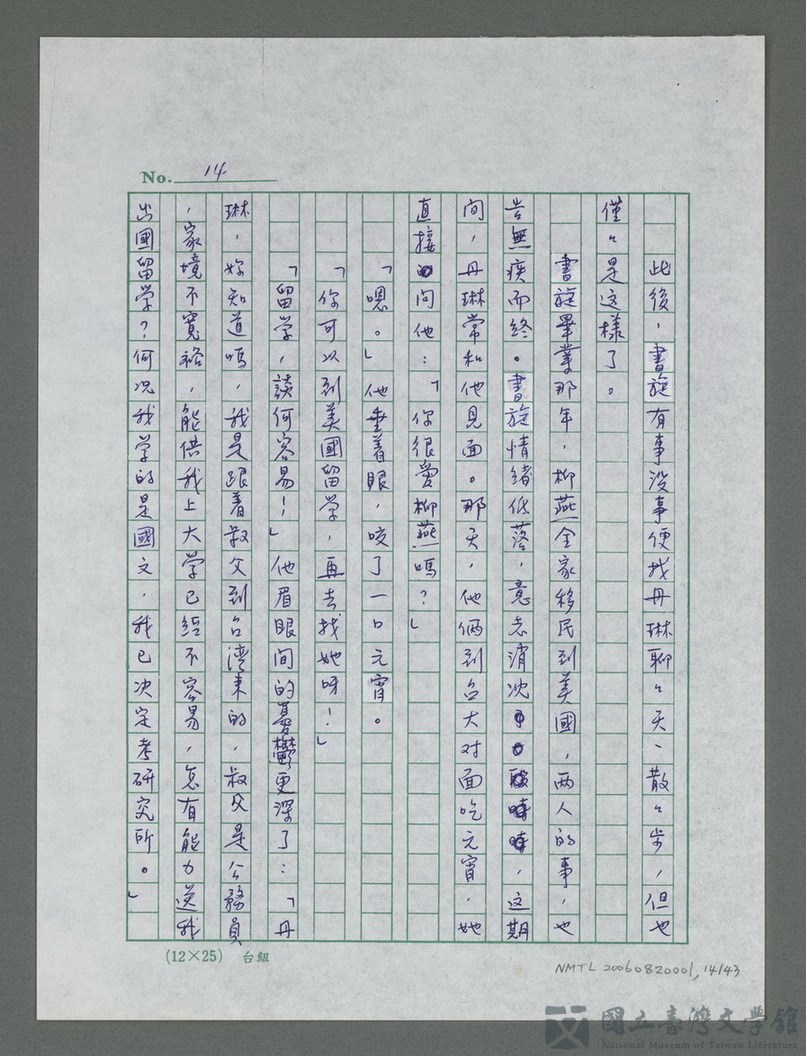 No. 14
此後，書旋有事沒事便找丹琳聊々天、散々步，但也
僅々是這樣了。
書旋畢業那年，柳燕全家移民到美國，兩人的事，也
告無疾而終。書旋情緒低落，意志消沈，這期
间，丹琳常和他見面。那天，他倆到台大对面吃元宵，她
直接问他：「你很愛柳燕嗎？」
「嗯。」他垂着眼，咬了一口元宵。
「你可以到美國留学，再去找她呀！」
「留学，談何容易！」他眉眼间的憂鬱更深了：「丹
琳，妳知道嗎，我是跟着叔父到台湾来的，叔父是公務員
，家境不寬裕，能供我上大学已經不容易，怎有能力送我
出國留学？何況我学的是國文，我已决定考研究所。」
(12×25) 台組
NMTL 20060820001, 14/43
國立臺灣文學館
National Museum of Taiwan Literature